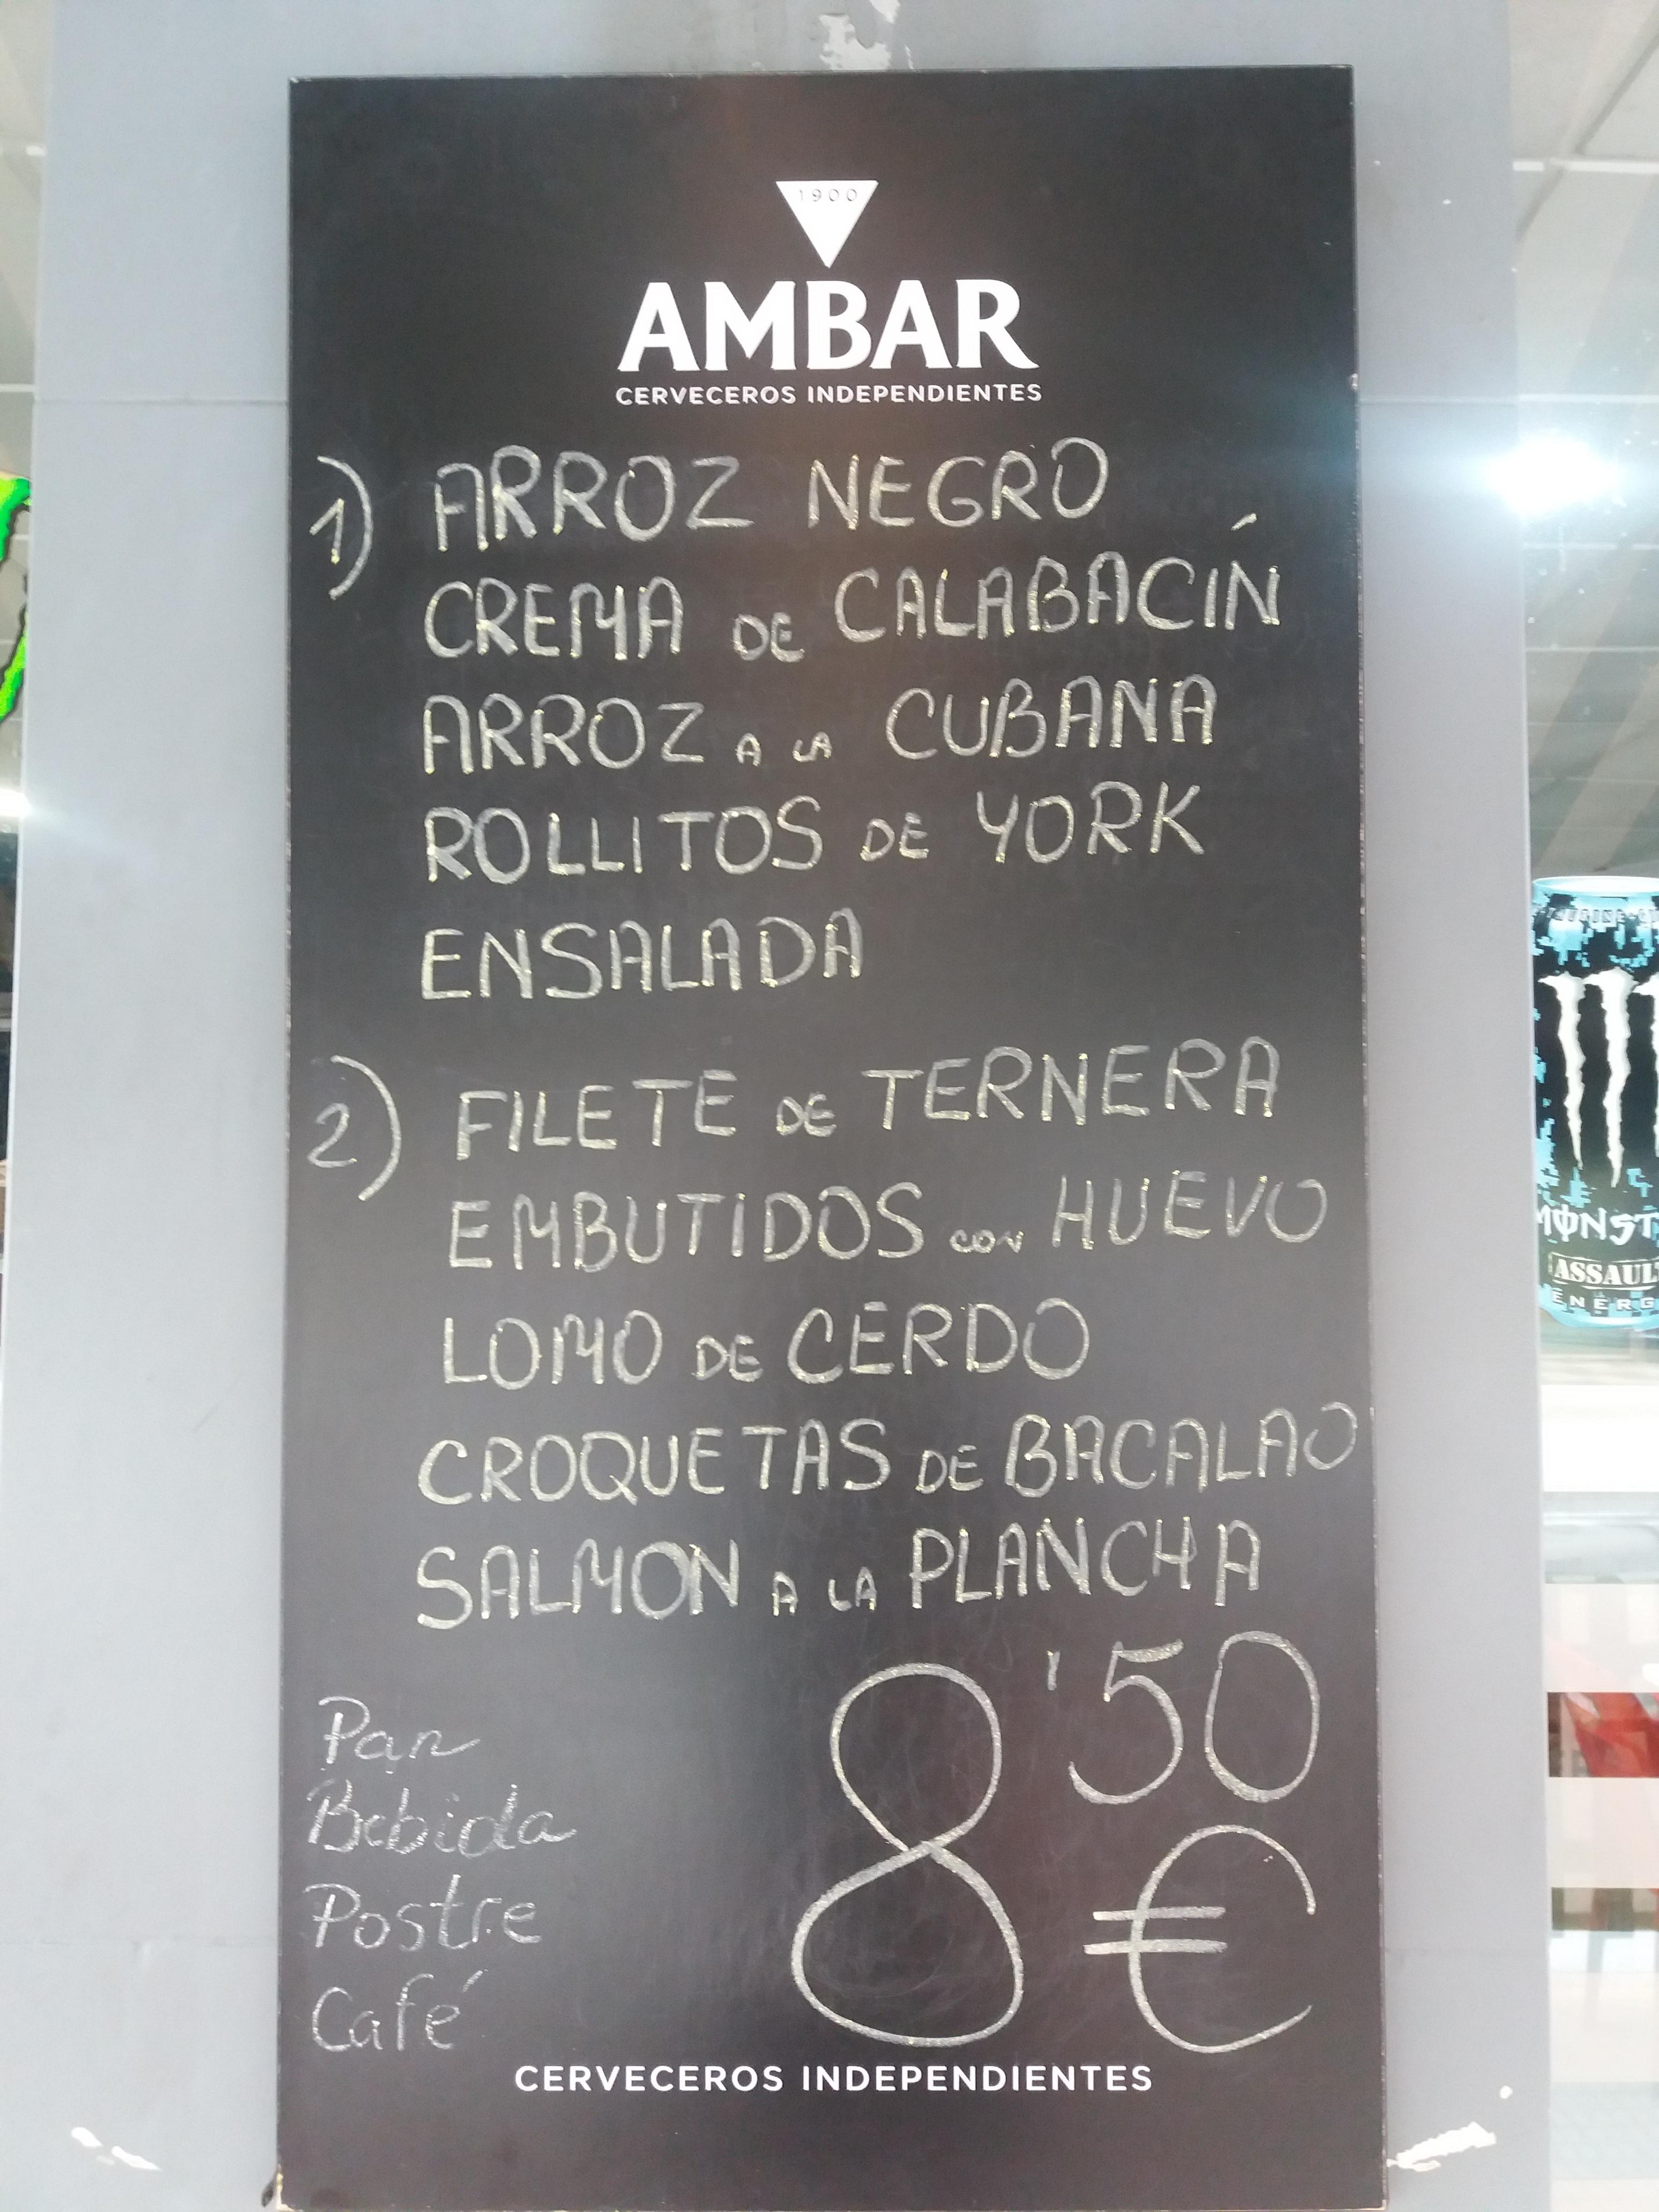 1900
AMBAR
CERVECEROS INDEPENDIENTES
1) ARROZ NEGRO
CREMA DE CALABACÍN
ARROZ A LA CUBANA
ROLLITOS DE YORK
ENSALADA
2) FILETE DE TERNERA
EMBUTIDOS CON HUEVO
LOMO DE CERDO
CROQUETAS DE BACALAO
SALMON A LA PLANCHA
8'50 €
Pan
Bebida
Postre
Café
CERVECEROS INDEPENDIENTES
MONST
ASSAUL
ENERG